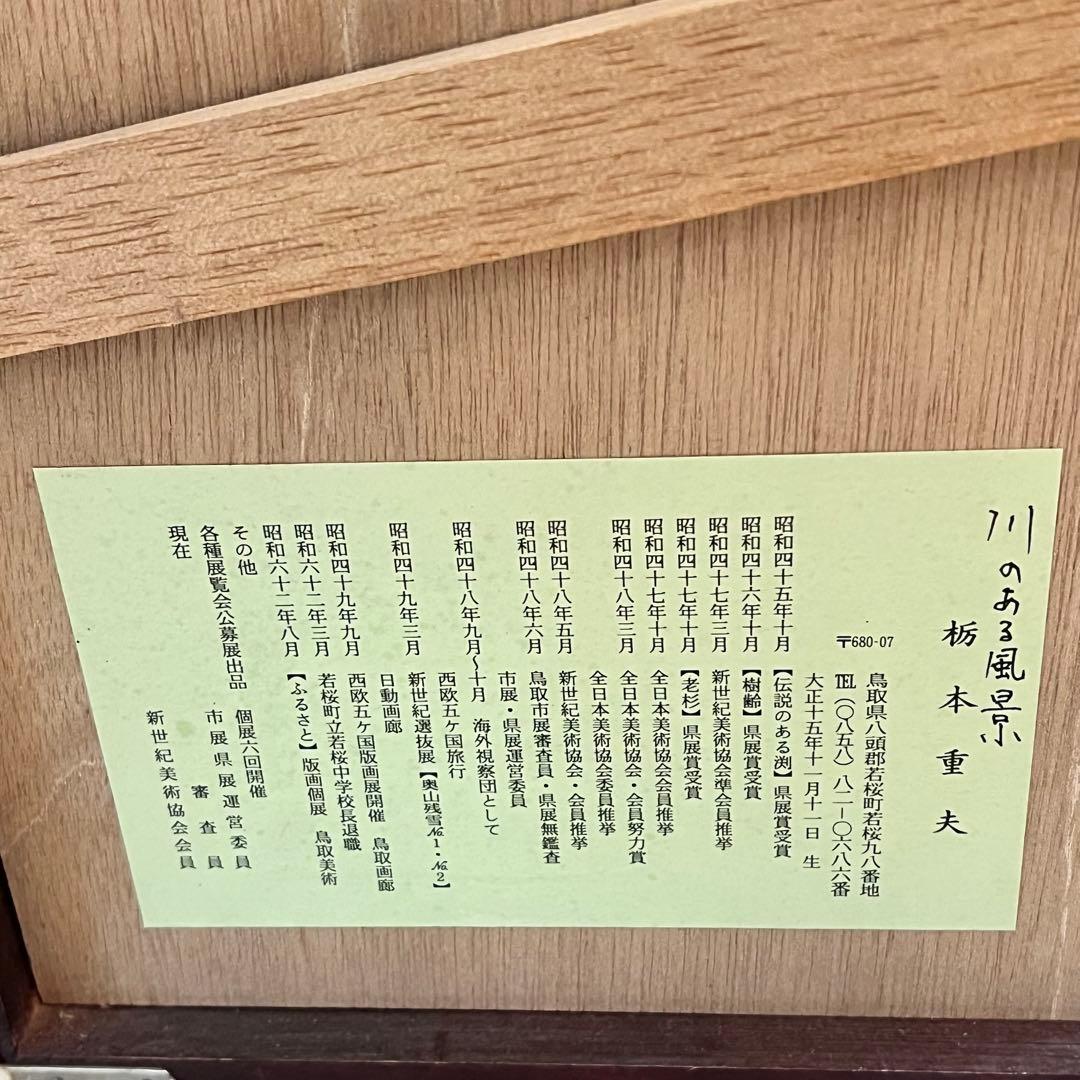 川のある風景
栃本重夫
〒680-07
鳥取県八頭郡若桜町若桜九八番地
℡(〇八五八)八二－〇六八六番
大正十五年十一月十一日 生
昭和四十五年十月 【伝説のある渕】県展賞受賞
昭和四十六年十月 【樹齢】県展賞受賞
昭和四十七年三月 新世紀美術協会準会員推挙
昭和四十七年十月 【老杉】県展賞受賞
昭和四十七年十月 全日本美術協会会員推挙
昭和四十八年三月 全日本美術協会・会員努力賞
全日本美術協会委員推挙
昭和四十八年五月 新世紀美術協会・会員推挙
昭和四十八年六月 鳥取市展審査員・県展無鑑査
市展・県展運営委員
昭和四十八年九月～十月 海外視察団として
西欧五ケ国旅行
昭和四十九年三月 新世紀選抜展【奥山残雪№1・№2】
日動画廊
昭和四十九年九月 西欧五ケ国版画展開催 鳥取画廊
昭和六十二年三月 若桜町立若桜中学校長退職
昭和六十二年八月 【ふるさと】版画個展 鳥取美術
その他 個展六回開催
各種展覧会公募展出品 市展県展運営委員
審査員
現在 新世紀美術協会会員